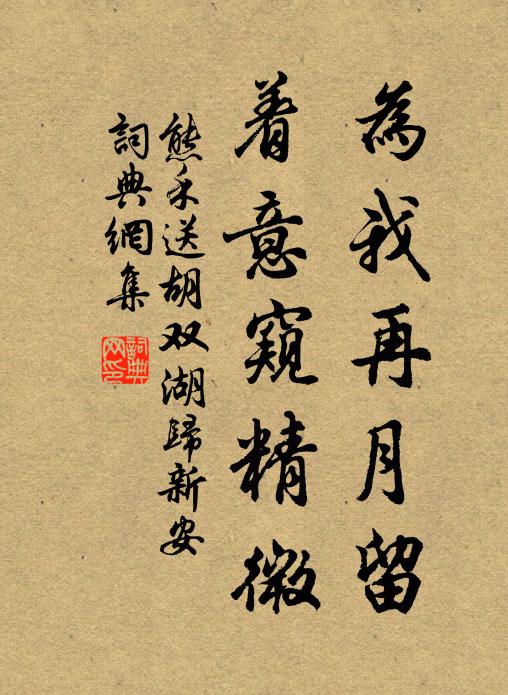 為我再月留
着意窺精微
熊禾送胡双湖歸新安
詞典網集
詞典
网印